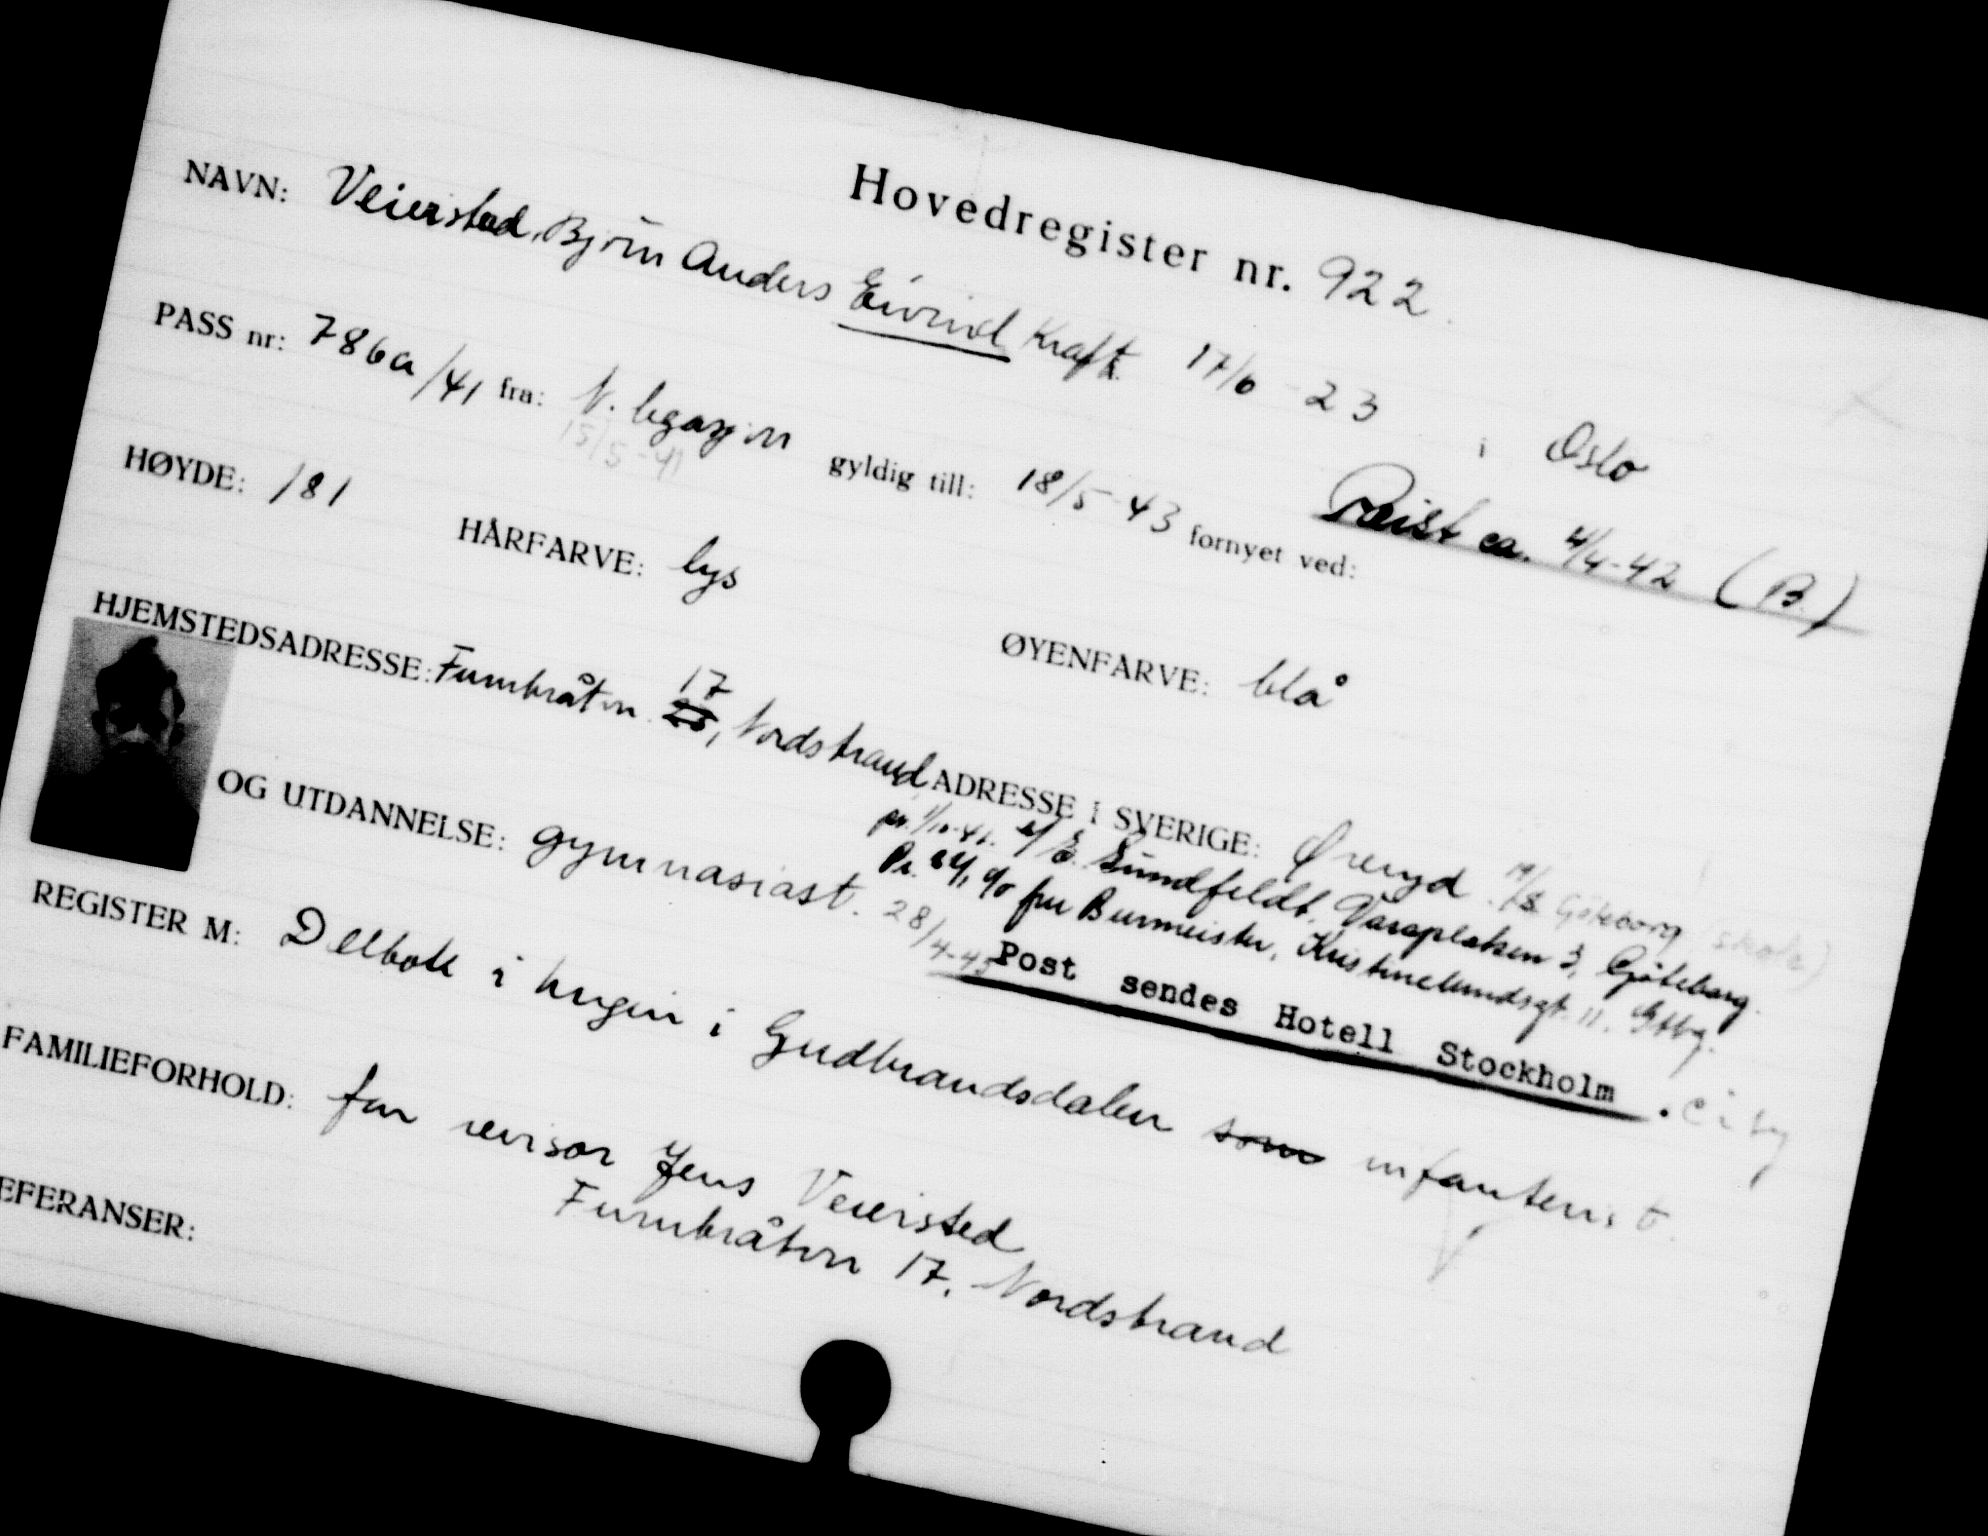 Hovedregister nr. 922.
NAVN: Veiersted, Bjørn Anders Eivind Kraft. 17/6 - 23 i Oslo
PASS nr: 786a/41 fra: N. legasjon gyldig till: 18/5-43 fornyet ved: Reist ca. 4/4-42 (B.)
15/5-41
HØYDE: 181 HÅRFARVE: lys ØYENFARVE: blå
HJEMSTEDSADRESSE: Furubråtvn. 17 25, Nordstrand ADRESSE I SVERIGE: Öreryd. 19/8 Göteborg (skole)
pr. 1/10-41. c/o E. Sundfeldt, Vasaplatsen 3, Göteborg.
OG UTDANNELSE: gymnasiast. Pr. c/o fru Burmeister, Kristinelundsgt. 11. Gtbg.
28/4-43 Post sendes Hotell Stockholm. City
REGISTER M: Deltok i krigen i Gudbrandsdalen som infanterist.
FAMILIEFORHOLD: far revisor Jens Veiersted
Furubråtvn 17, Nordstrand
EFERANSER: